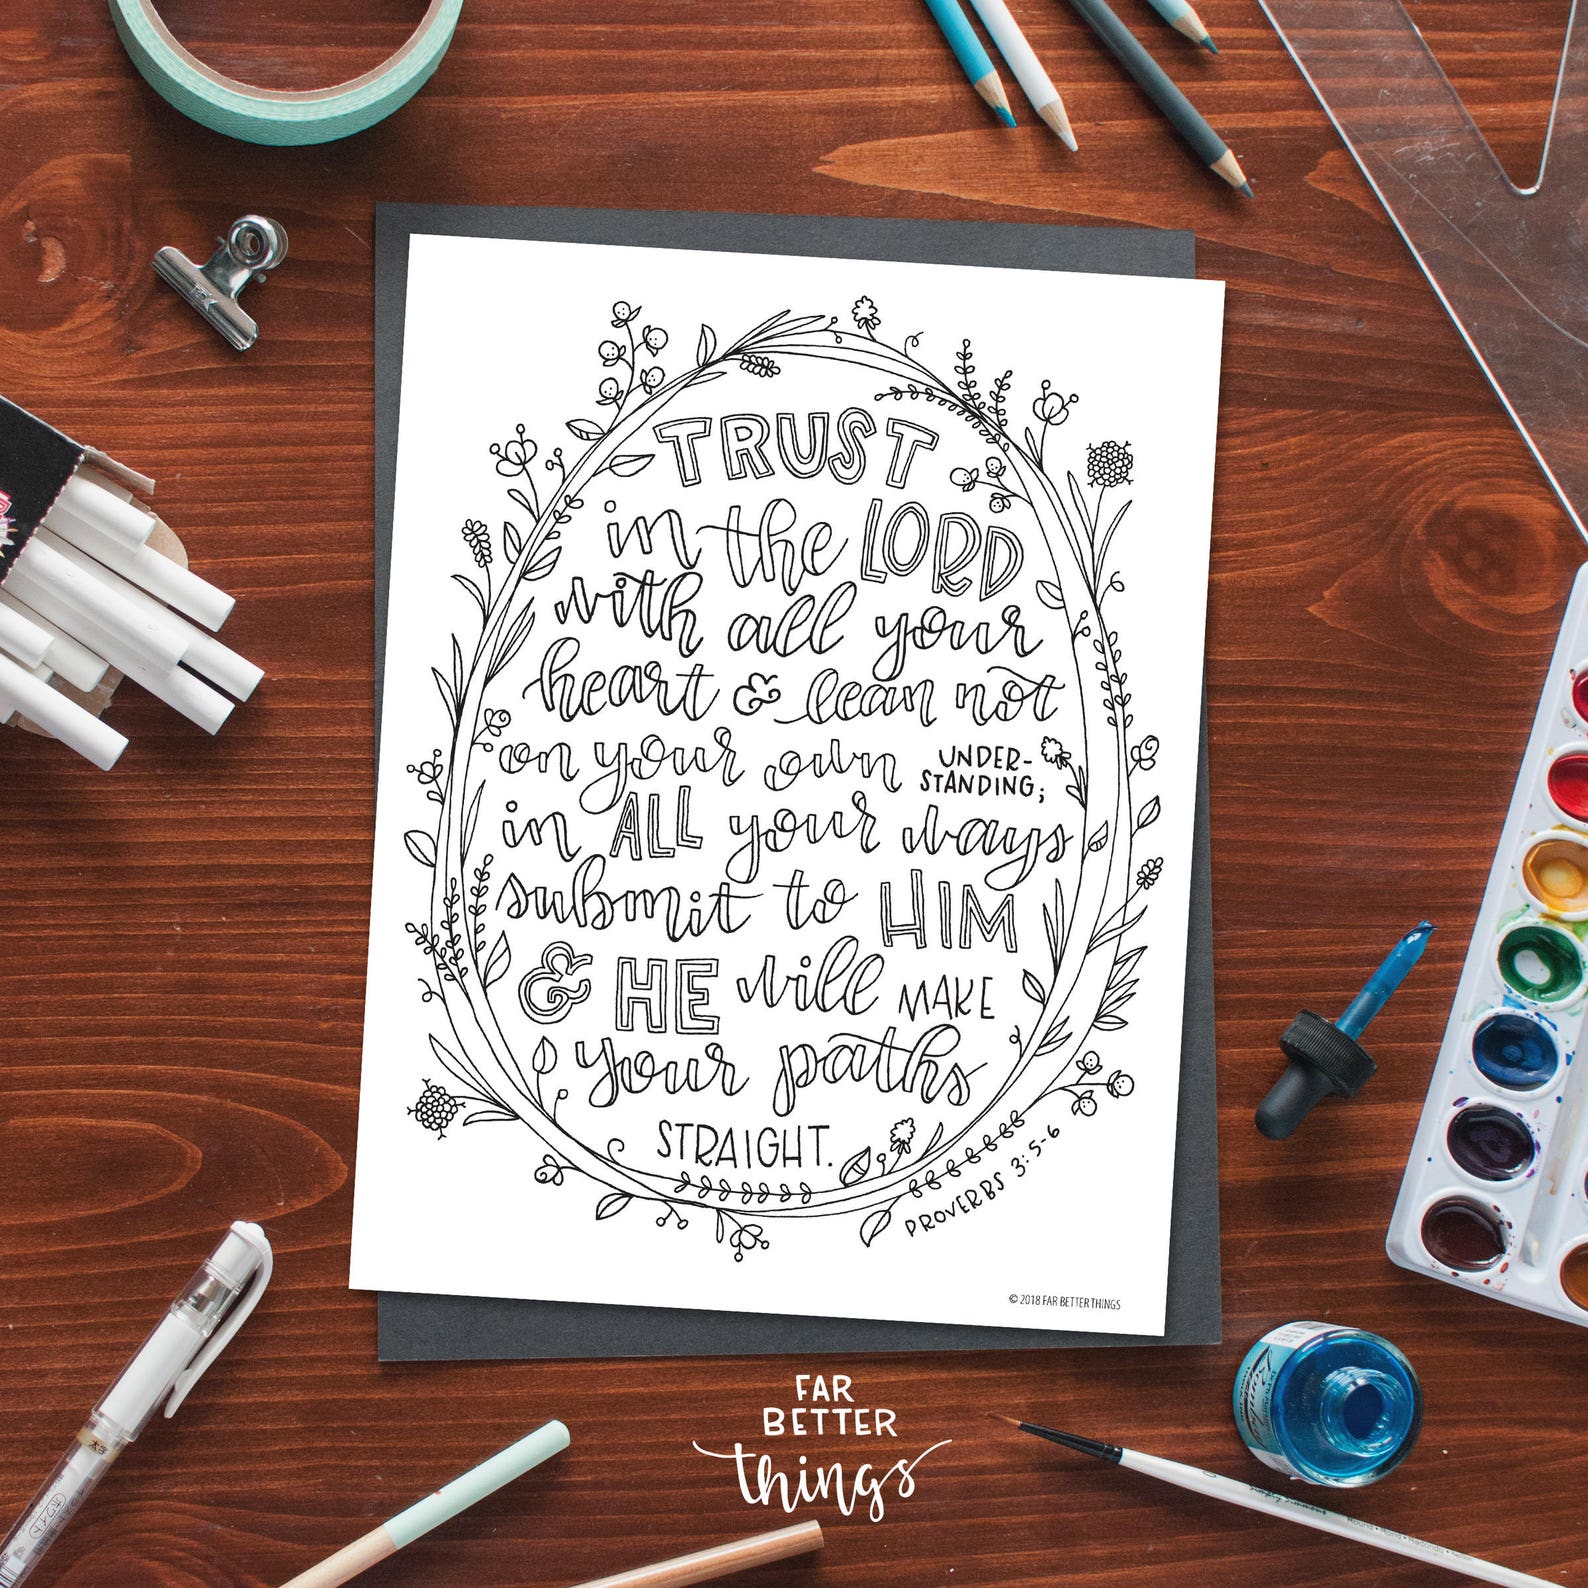 TRUST
in the LORD
with all your
heart & lean not
on your own UNDER-
STANDING;
in ALL your ways
submit to HIM
& HE will MAKE
your paths
STRAIGHT.
PROVERBS 3:5-6
© 2018 FAR BETTER THINGS
FAR
BETTER
things